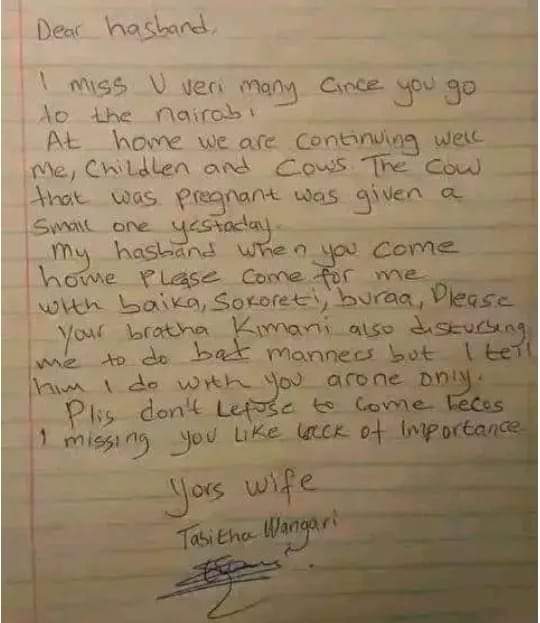 Dear hasband,
I miss U veri many cince you go
to the nairobi
At home we are continuing well
me, childlen and cows. The cow
that was pregnant was given a
small one yestaday.
My hasband when you come
home please come for me
with baika, sokoreti, buraa, Please
Your bratha Kimani also disturbing
me to do bat manners but I tell
him I do with you arone only.
Plis don't lefuse to come becos
I missing you like lack of importance
Yors wife
Tabitha Wangari